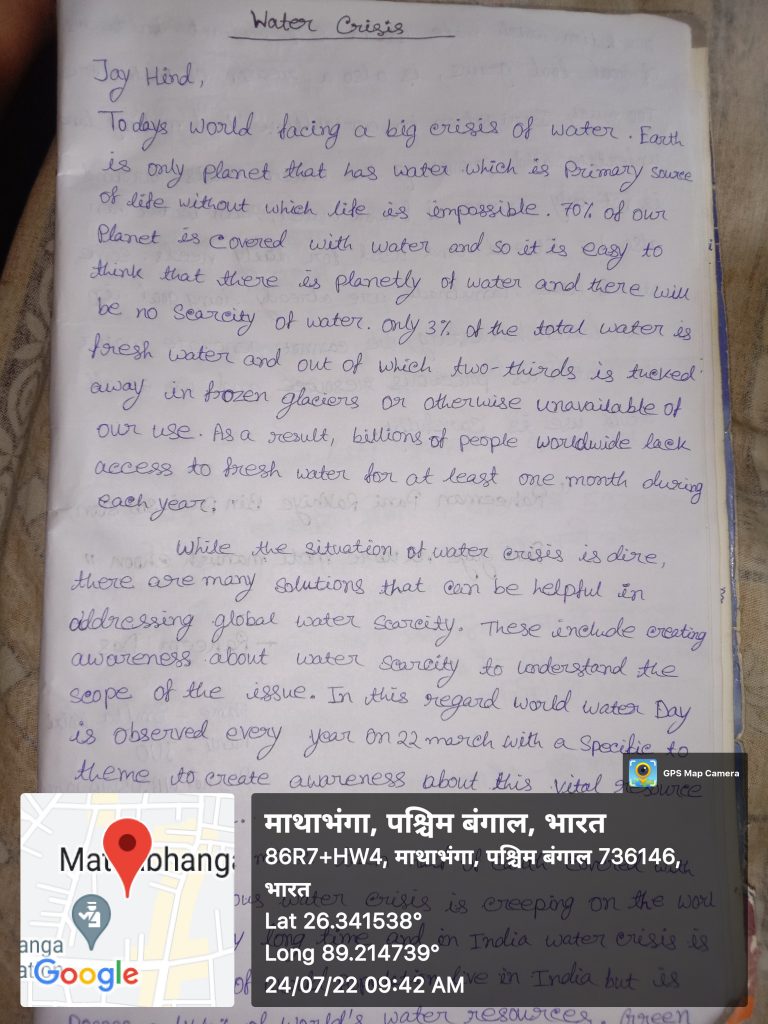 Water Crisis
Jay Hind,
Todays world facing a big crisis of water. Earth
is only planet that has water which is Primary source
of life without which life is impossible. 70% of our
Planet is covered with water and so it is easy to
think that there is planetly of water and there will
be no scarcity of water. only 3% of the total water is
fresh water and out of which two-thirds is tucked
away in frozen glaciers or otherwise unavailable of
our use. As a result, billions of people worldwide lack
access to fresh water for at least one month during
each year.
While the situation of water crisis is dire,
there are many solutions that can be helpful in
addressing global water scarcity. These include creating
awareness about water scarcity to understand the
scope of the issue. In this regard world water Day
is observed every year on 22 march with a specific to
theme to create awareness about this vital resource
GPS Map Camera
माथाभंगा, पश्चिम बंगाल, भारत
86R7+HW4, माथाभंगा, पश्चिम बंगाल 736146,
भारत
Lat 26.341538°
Long 89.214739°
24/07/22 09:42 AM
Google
covered with
water crisis is creeping on the worl
long time and in India water crisis is
live in India but is
of world's water resources. Green